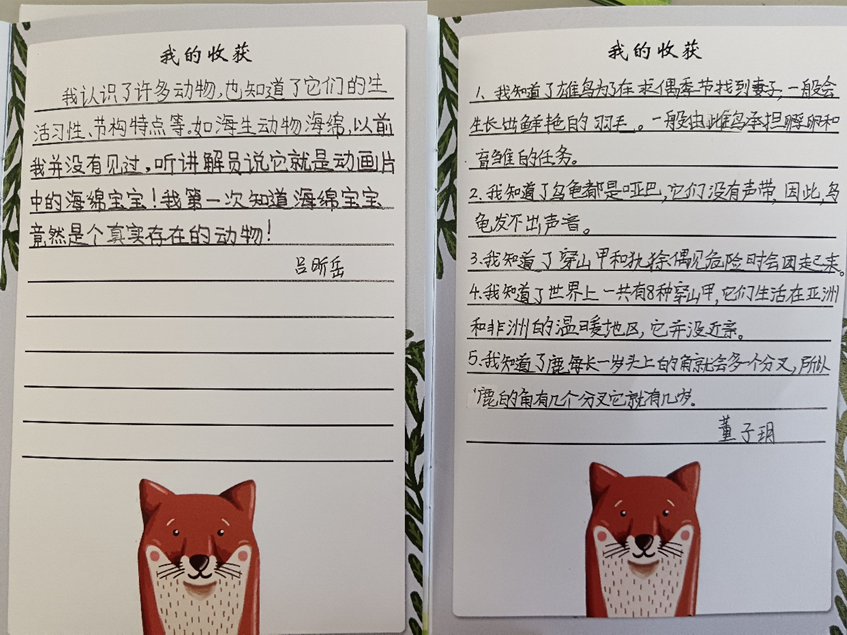 我的收获
我认识了许多动物,也知道了它们的生
活习性、节构特点等。如海生动物海绵,以前
我并没有见过,听讲解员说它就是动画片
中的海绵宝宝!我第一次知道海绵宝宝
竟然是个真实存在的动物!
吕昕岳
我的收获
1、我知道了雄鸟为了在求偶季节找到妻子,一般会
生长出鲜艳的羽毛。一般由雌鸟承担孵卵和
育雏的任务。
2、我知道了乌龟都是哑巴,它们没有声带,因此,乌
龟发不出声音。
3.我知道了穿山甲和犰狳偶见危险时会团起来。
4.我知道了世界上一共有8种穿山甲,它们生活在亚洲
和非洲的温暖地区,它并没近亲。
5.我知道了鹿每长一岁头上的角就会多一个分叉,所以
鹿的角有几个分叉它就有几岁。
董子玥